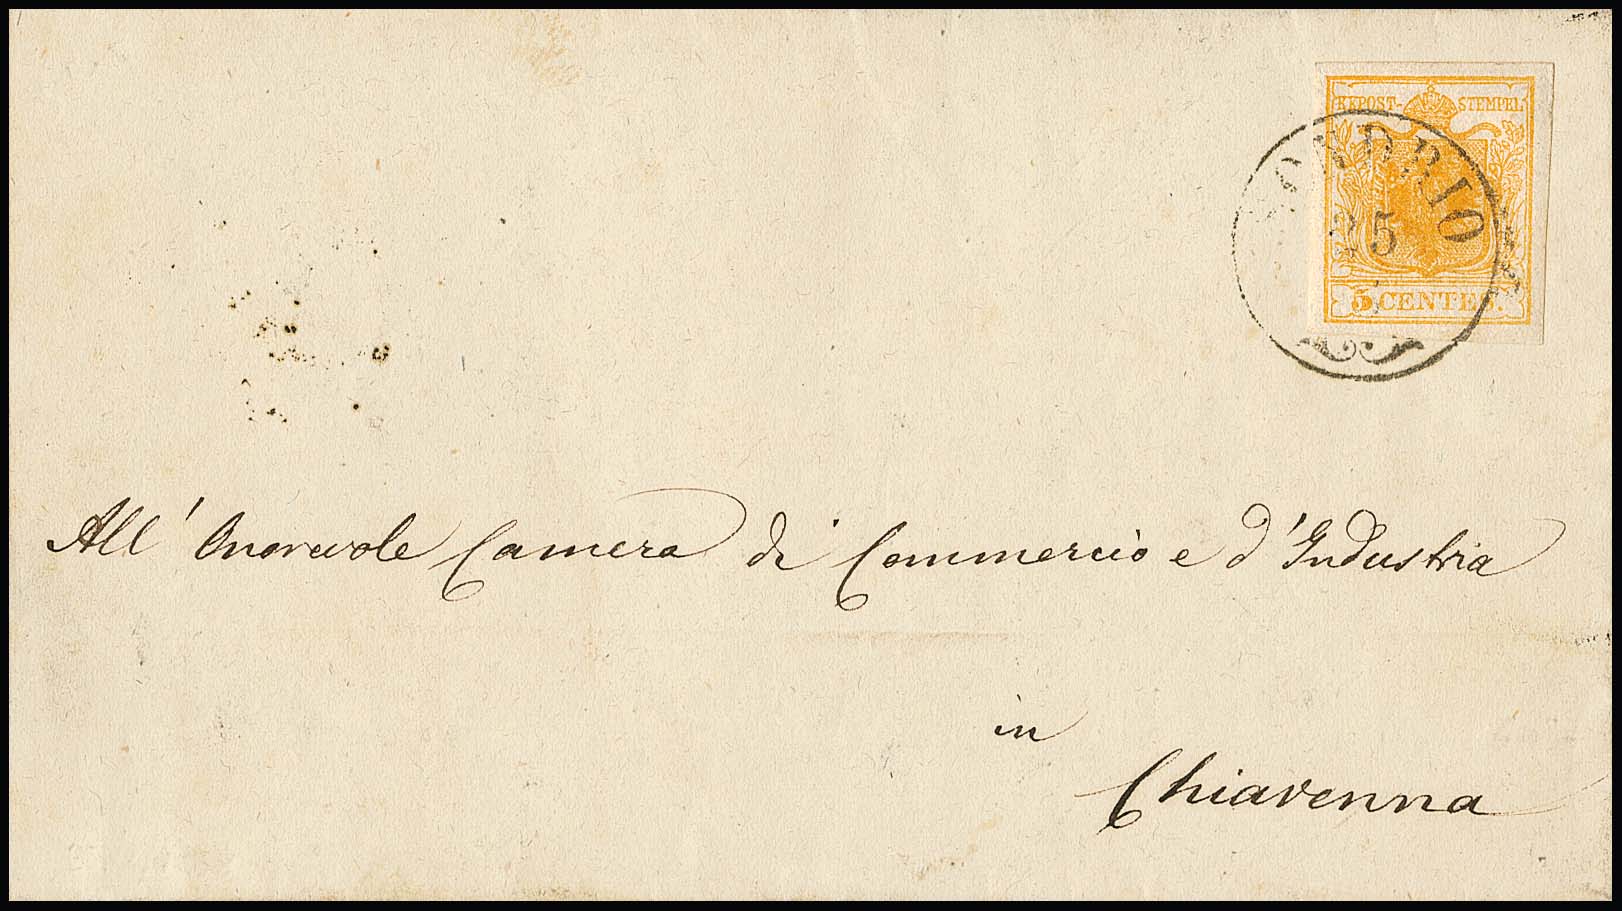 KKPOST-STEMPEL
SONDRIO
25
5 CENTES.
All' Onorevole Camera di Commercio e d'Industria
in
Chiavenna